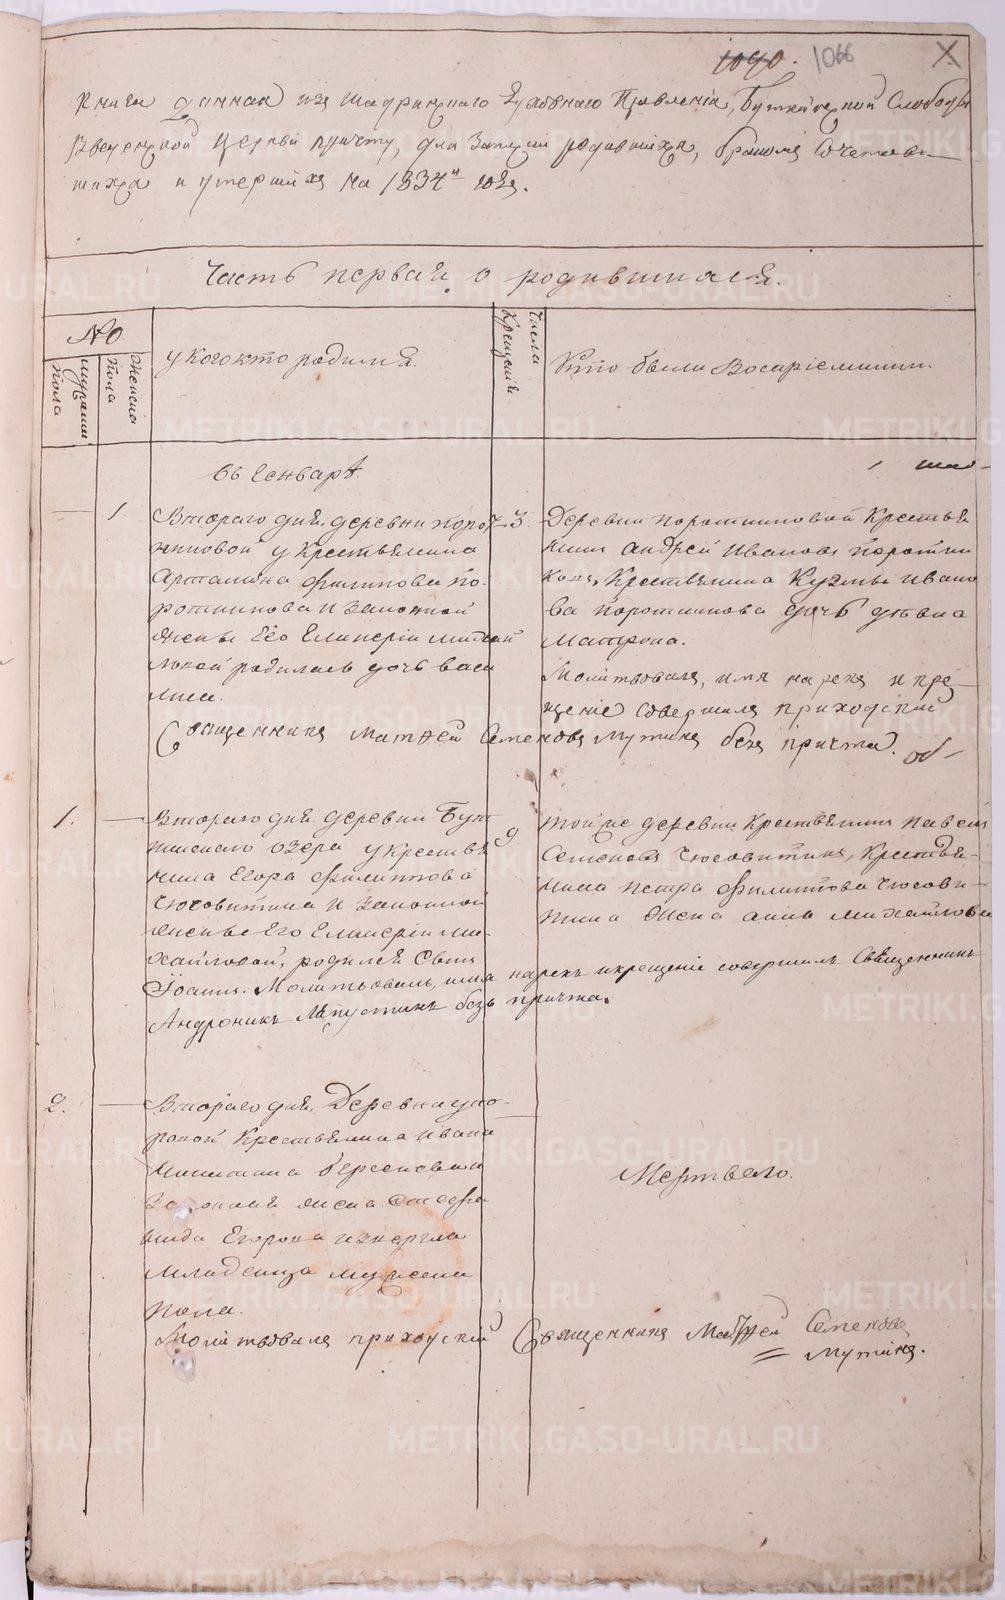 1090. 1066
Книга данная изъ Шадринскаго Духовнаго Правленія, Буткинской Слободы
Введенской церкви причту, для записи родившихъ, бракомъ сочетав-
шихъ и умершихъ на 1834й годъ.
Часть первая о родившихся.
№
Мужеска пола
Женска пола
у кого кто родился.
Числа Крещенія
Кто были Восприемники.
въ Генварѣ.
1
Втораго дня. деревни Поро-
тниковой у крестьянина
Филипова По-
ротникова и законной
жены Его Гликеріи
родилась дочь Васи
лиса.
3
Деревни Поротниковой Крестья
нинъ Андрей Ивановъ Поротни
ковъ, Крестьянина Кузмы Ивано
ва Поротникова дочь дѣвка
Матрона.
Молитвовалъ, имя нарекъ и кре-
щеніе совершилъ приходскій
Священникъ Матѳей Семеновъ Мутинъ безъ причта.
1.
Втораго дня деревни Бут
кинскаго озера у крестья
нина Егора Филиппова
Чюсовитина и законной
жены Его Гликеріи Ми-
хайловой, родился сынъ
Іоаннъ. Молитвовалъ, имя нарекъ и крещеніе совершилъ Священникъ
Андроникъ Лапустинъ безъ причта.
9
той же деревни Крестьянинъ Павелъ
Семеновъ Чюсовитинъ, Крестья-
нина Петра Филиппова Чюсови-
тина жена Анна Михайлова
2.
Втораго дня. Деревни
Крестьянина Ивана
Никитина
законная жена
Егорова извергла
младенца мужеска
пола.
Мертваго.
Молитвовалъ приходскій Священникъ Матѳей Семеновъ
Мутинъ.